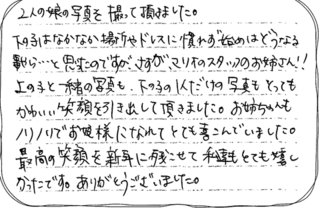 2人の娘の写真を撮って頂きました。
下の子はなかなか場所やドレスに慣れず始めはどうなる
事やら…と思ったのですがさすがマリオのスタッフのお姉さん!!
上の子と一緒の写真も、下の子の1人だけの写真もとっても
かわいい笑顔を引き出して頂きました。お姉ちゃんも
ノリノリでお姫様になれてとても喜こんでいました。
最高の笑顔を写真に残こせて私達もとても嬉し
かったです。ありがとうございました。